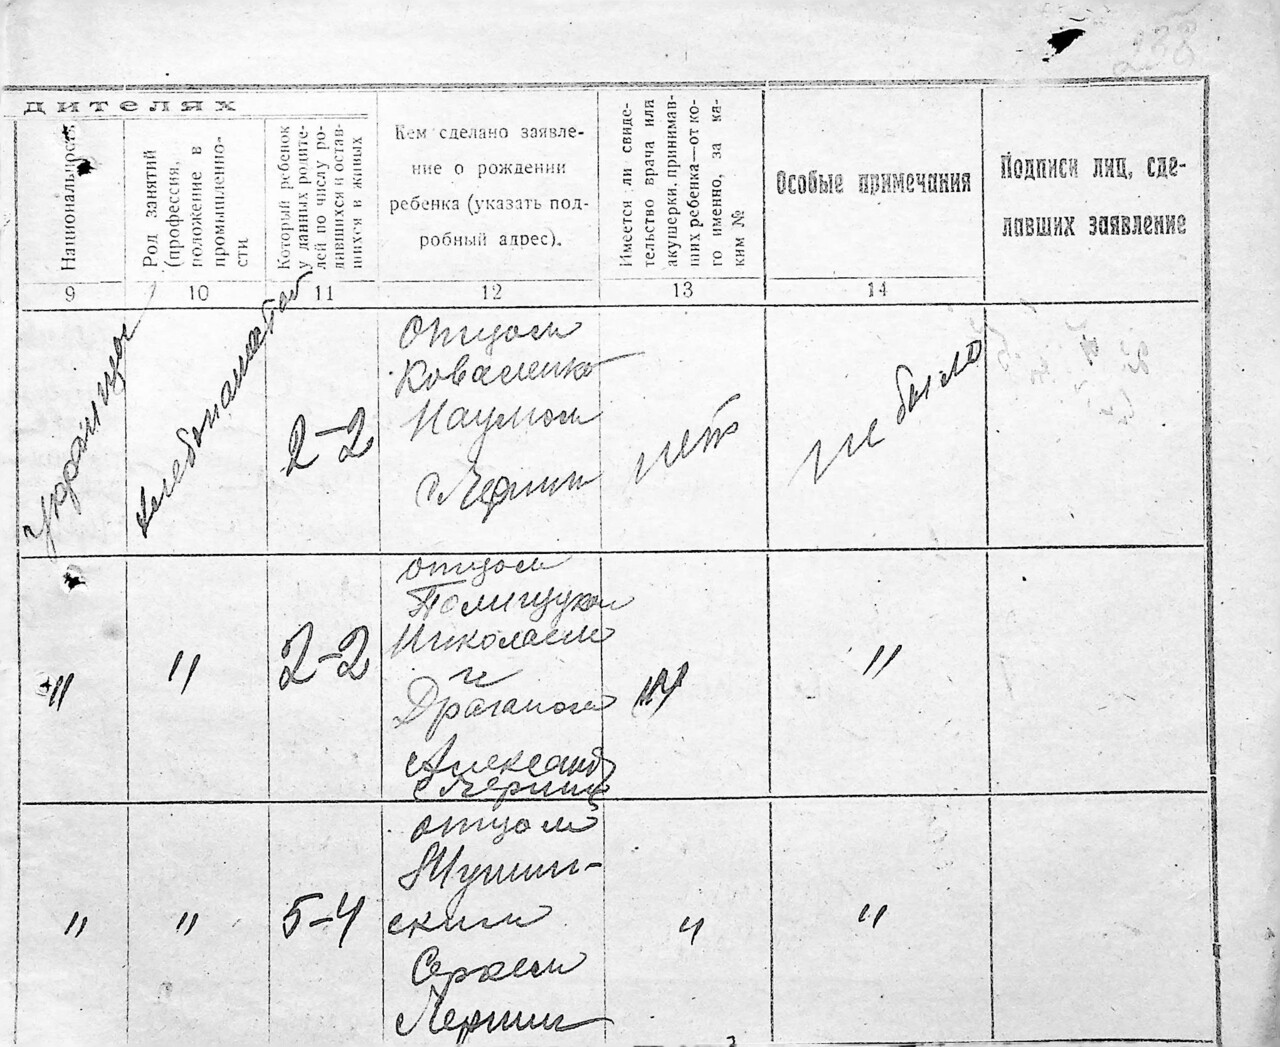 238
дителях
Национальность
Род занятий
(профессия,
положение в
промышленно-
сти
Который ребенок
у данных родите-
лей по числу ро-
дившихся и остав-
шихся в живых
Кем сделано заявле-
ние о рождении
ребенка (указать под-
робный адрес).
Имеется ли свиде-
тельство врача или
акушерки, принимав-
ших ребенка—от ко-
го именно, за ка-
ким №
Особые примечания
Подписи лиц, сде-
лавших заявление
9
10
11
12
13
14
украинцы
хлебопашество
2–2
Отцом
Коваленко
Наумом
нет
не было
"
"
2–2
отцом
Полищуком
Николаем
и
"
"
"
5–4
отцом
Шумин-
ским
Сергеем
"
"